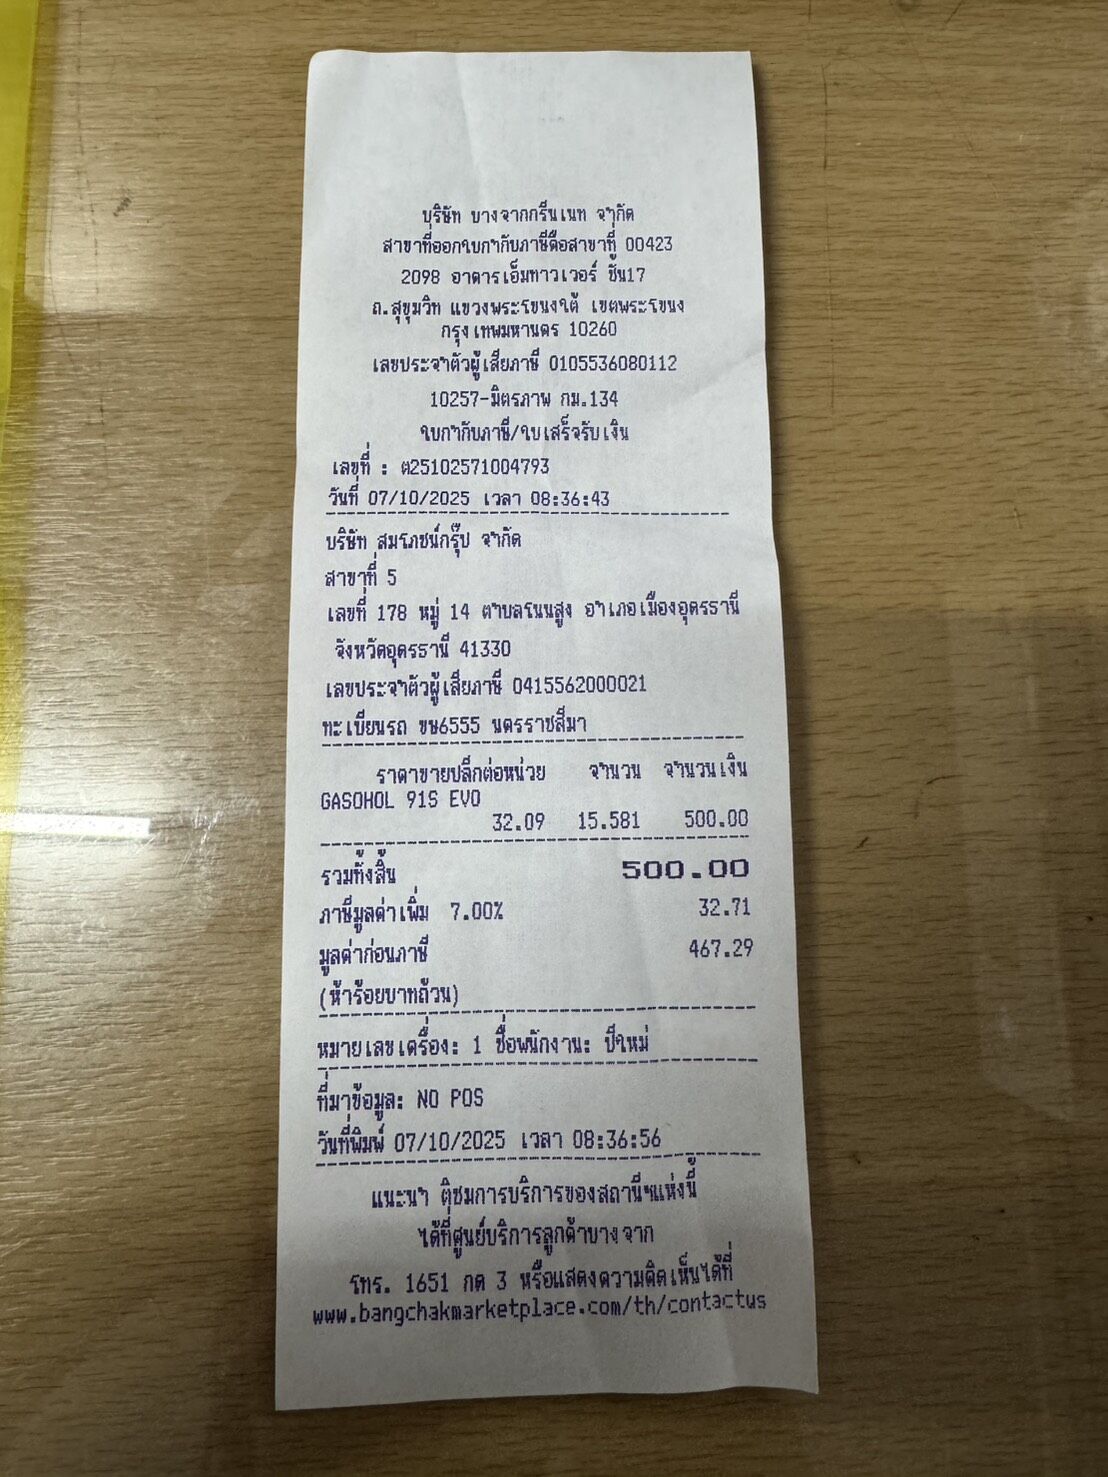 บริษัท บางจากกรีนเนท จำกัด
สาขาที่ออกใบกำกับภาษีคือสาขาที่ 00423
2098 อาคารเอ็มทาวเวอร์ ชั้น17
ถ.สุขุมวิท แขวงพระโขนงใต้ เขตพระโขนง
กรุงเทพมหานคร 10260
เลขประจำตัวผู้เสียภาษี 0105536080112
10257-มิตรภาพ กม.134
ใบกำกับภาษี/ใบเสร็จรับเงิน
เลขที่ : ต25102571004793
วันที่ 07/10/2025 เวลา 08:36:43
บริษัท สมโภชน์กรุ๊ป จำกัด
สาขาที่ 5
เลขที่ 178 หมู่ 14 ตำบลโนนสูง อำเภอเมืองอุดรธานี
จังหวัดอุดรธานี 41330
เลขประจำตัวผู้เสียภาษี 0415562000021
ทะเบียนรถ ขษ6555 นครราชสีมา
ราคาขายปลีกต่อหน่วย จำนวน จำนวนเงิน
GASOHOL 91S EVO
32.09 15.581 500.00
รวมทั้งสิ้น 500.00
ภาษีมูลค่าเพิ่ม 7.00% 32.71
มูลค่าก่อนภาษี 467.29
(ห้าร้อยบาทถ้วน)
หมายเลขเครื่อง: 1 ชื่อพนักงาน: ปีใหม่
ที่มาข้อมูล: NO POS
วันที่พิมพ์ 07/10/2025 เวลา 08:36:56
แนะนำ ติชมการบริการของสถานีฯแห่งนี้
ได้ที่ศูนย์บริการลูกค้าบางจาก
โทร. 1651 กด 3 หรือแสดงความคิดเห็นได้ที่
www.bangchakmarketplace.com/th/contactus